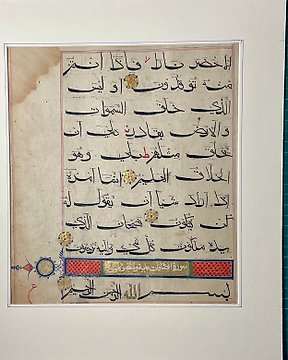 الاخضر نارا فاذا انتم
منه توقدون اوليس
الذي خلق السموات
والارض بقادر على ان
يخلق مثلهم بلى وهو
الخلاق العليم انما امره
اذا اراد شيئا ان يقول له
كن فيكون فسبحان الذي
بيده ملكوت كل شيء واليه ترجعون
سورة
بسم الله الرحمن الرحيم